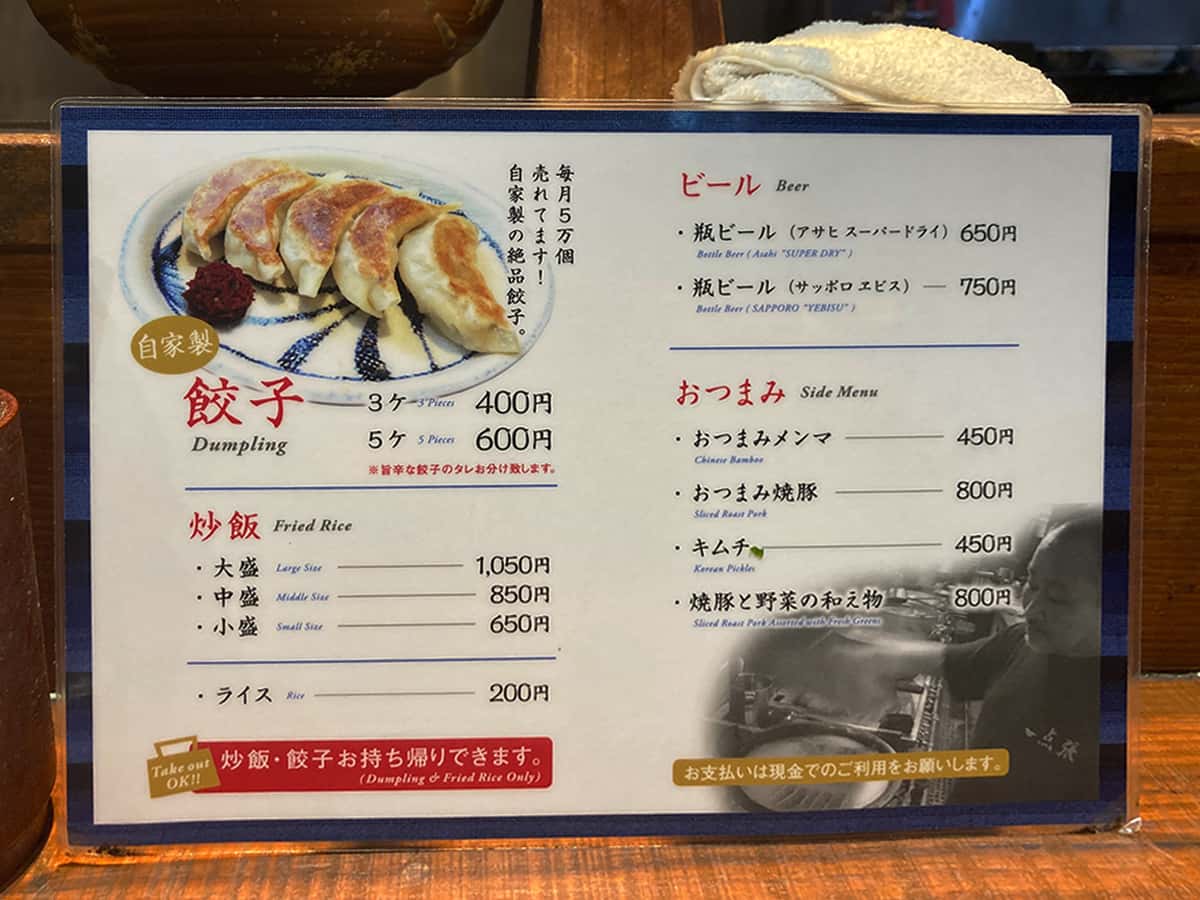 毎月5万個
売れてます！
自家製の絶品餃子。
自家製
餃子
Dumpling
3ケ 3 Pieces 400円
5ケ 5 Pieces 600円
※旨辛な餃子のタレお分け致します。
炒飯 Fried Rice
・大盛 Large Size 1,050円
・中盛 Middle Size 850円
・小盛 Small Size 650円
・ライス Rice 200円
Take out
OK!!
炒飯・餃子お持ち帰りできます。
(Dumpling & Fried Rice Only)
ビール Beer
・瓶ビール（アサヒ スーパードライ） 650円
Bottle Beer ( Asahi "SUPER DRY" )
・瓶ビール（サッポロ ヱビス） 750円
Bottle Beer ( SAPPORO "YEBISU" )
おつまみ Side Menu
・おつまみメンマ 450円
Chinese Bamboo
・おつまみ焼豚 800円
Sliced Roast Pork
・キムチ 450円
Korean Pickles
・焼豚と野菜の和え物 800円
Sliced Roast Pork Assorted with Fresh Greens
一点張
お支払いは現金でのご利用をお願いします。